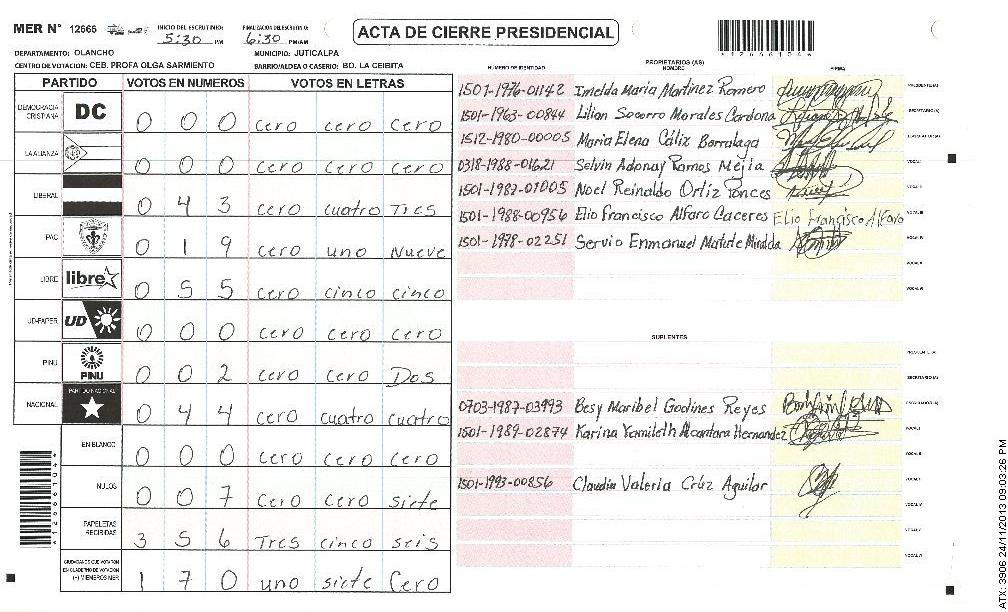 MER N° 12666 INICIO DEL ESCRUTINIO: 5:30 PM FINALIZACION DEL ESCRUTINIO: 6:30 PM/AM
ACTA DE CIERRE PRESIDENCIAL
DEPARTAMENTO: OLANCHO MUNICIPIO: JUTICALPA
CENTRO DE VOTACION: CEB. PROFA OLGA SARMIENTO BARRIO/ALDEA O CASERIO: BO. LA CEIBITA
PARTIDO VOTOS EN NUMEROS VOTOS EN LETRAS
DEMOCRACIA CRISTIANA DC 0 0 0 cero cero cero
LA ALIANZA 0 0 0 cero cero cero
LIBERAL 0 4 3 cero cuatro Tres
PAC 0 1 9 cero uno Nueve
LIBRE libre 0 5 5 cero cinco cinco
UD-FAPER UD 0 0 0 cero cero cero
PINU PINU 0 0 2 cero cero Dos
NACIONAL PARTIDO NACIONAL 0 4 4 cero cuatro cuatro
EN BLANCO 0 0 0 cero cero cero
NULOS 0 0 7 cero cero siete
PAPELETAS RECIBIDAS 3 5 6 Tres cinco seis
CIUDADANOS QUE VOTARON EN CUADERNO DE VOTACION (+) MIEMBROS MER 1 7 0 uno siete Cero
NÚMERO DE IDENTIDAD PROPIETARIOS (AS) NOMBRE FIRMA
1501-1976-01142 Imelda Maria Martinez Romero PRESIDENTE(A)
1501-1963-00844 Lilian Socorro Morales Cardona SECRETARIO(A)
1512-1980-00005 Maria Elena Cáliz Barralaga ESCRUTADOR(A)
0318-1988-01621 Selvin Adonay Ramos Mejia VOCAL I
1501-1987-01005 Noel Reinaldo Ortiz Ponces VOCAL II
1501-1988-00956 Elio Francisco Alfaro Caceres Elio Francisco Alfaro VOCAL III
1501-1978-02251 Servio Enmanuel Matute Miralda VOCAL IV
VOCAL V
VOCAL VI
SUPLENTES
PRESIDENTE (A)
SECRETARIO (A)
0703-1987-03993 Besy Maribel Godines Reyes ESCRUTADOR(A)
1501-1989-02874 Karina Yamileth Alcantara Hernandez VOCAL I
VOCAL II
1501-1993-00856 Claudia Valeria Cruz Aguilar
VOCAL IV
VOCAL V
VOCAL VI
ATX: 3906 24/11/2013 09:03:26 PM